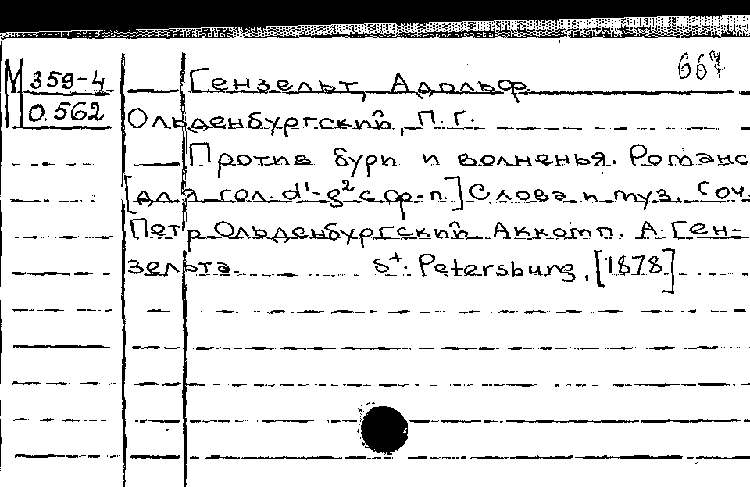 М 359-4 Гензельт, Адольф 667
О.562 Ольденбургский, П.Г.
Против бури и волненья. Романс
[для гол. d¹-g² с ф-п.] Слова и муз. соч.
Петр Ольденбургский Аккомп. А. Ген-
зельта. St. Petersburg, [1878]